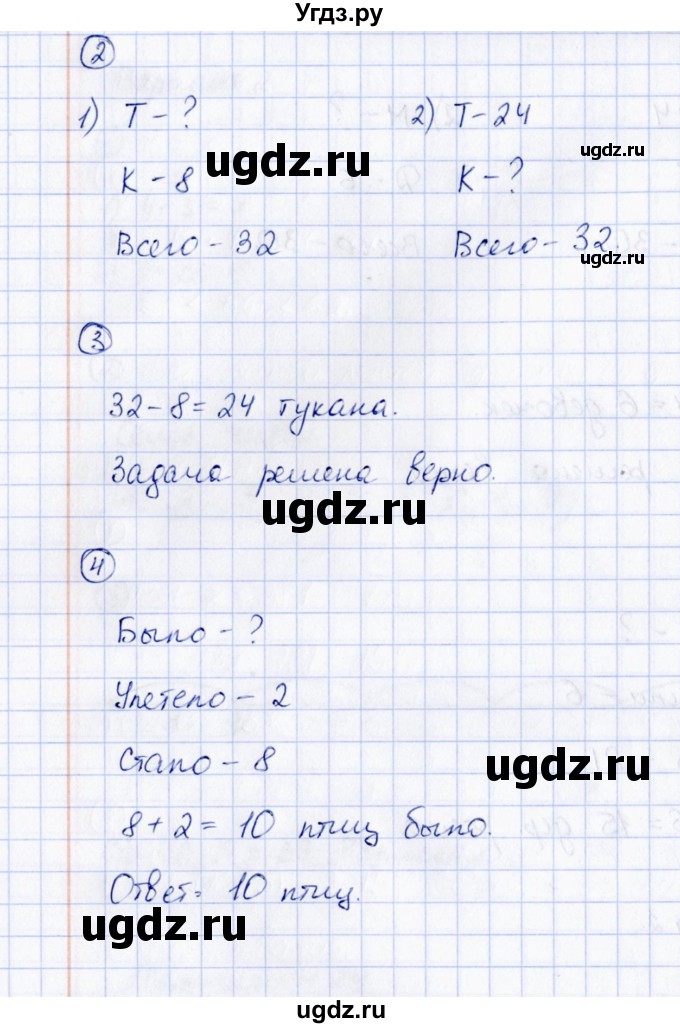 Угдз.ру
2
1) Т - ?
2) Т - 24
ugdz.ru
ugdz.ru
К - 8
К - ?
Всего - 32
Всего - 32.
ugdz.ru
3
32 - 8 = 24 тукана.
Задача решена верно.
ugdz.ru
4
Было - ?
Улетело - 2
Стало - 8
ugdz.ru
8 + 2 = 10 птиц было.
Ответ: 10 птиц.
ugdz.ru
ugdz.ru